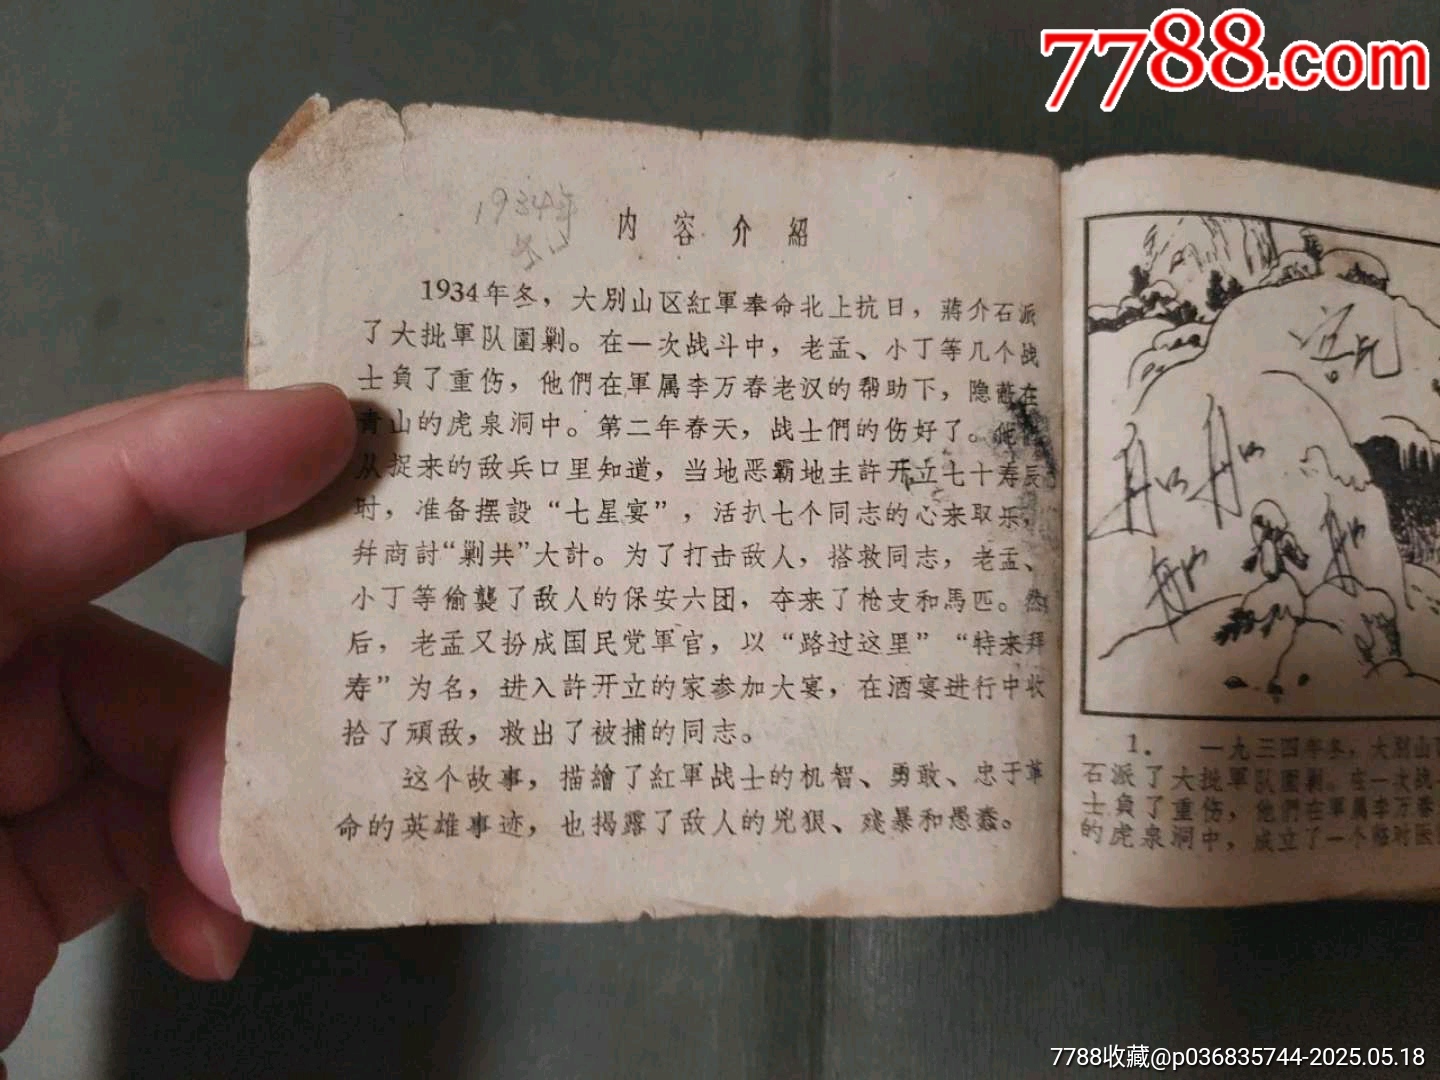 7788.com
1934年
冬
内容介紹
1934年冬，大別山区紅軍奉命北上抗日，蔣介石派
了大批軍队圍剿。在一次战斗中，老孟、小丁等几个战
士負了重伤，他們在軍属李万春老汉的帮助下，隐蔽在
青山的虎泉洞中。第二年春天，战士們的伤好了。他
从捉来的敌兵口里知道，当地恶霸地主許开立七十寿辰
时，准备摆設“七星宴”，活扒七个同志的心来取乐，
幷商討“剿共”大計。为了打击敌人，搭救同志，老孟、
小丁等偷襲了敌人的保安六团，夺来了枪支和馬匹。然
后，老孟又扮成国民党軍官，以“路过这里”“特来拜
寿”为名，进入許开立的家参加大宴，在酒宴进行中收
拾了頑敌，救出了被捕的同志。
这个故事，描繪了紅軍战士的机智、勇敢、忠于革
命的英雄事迹，也揭露了敌人的兇狠、残暴和愚蠢。
1. 一九三四年冬，大別山
石派了大批軍队圍剿。在一次战
士負了重伤，他們在軍属李万春
的虎泉洞中，成立了一个临时医
7788收藏@p036835744-2025.05.18